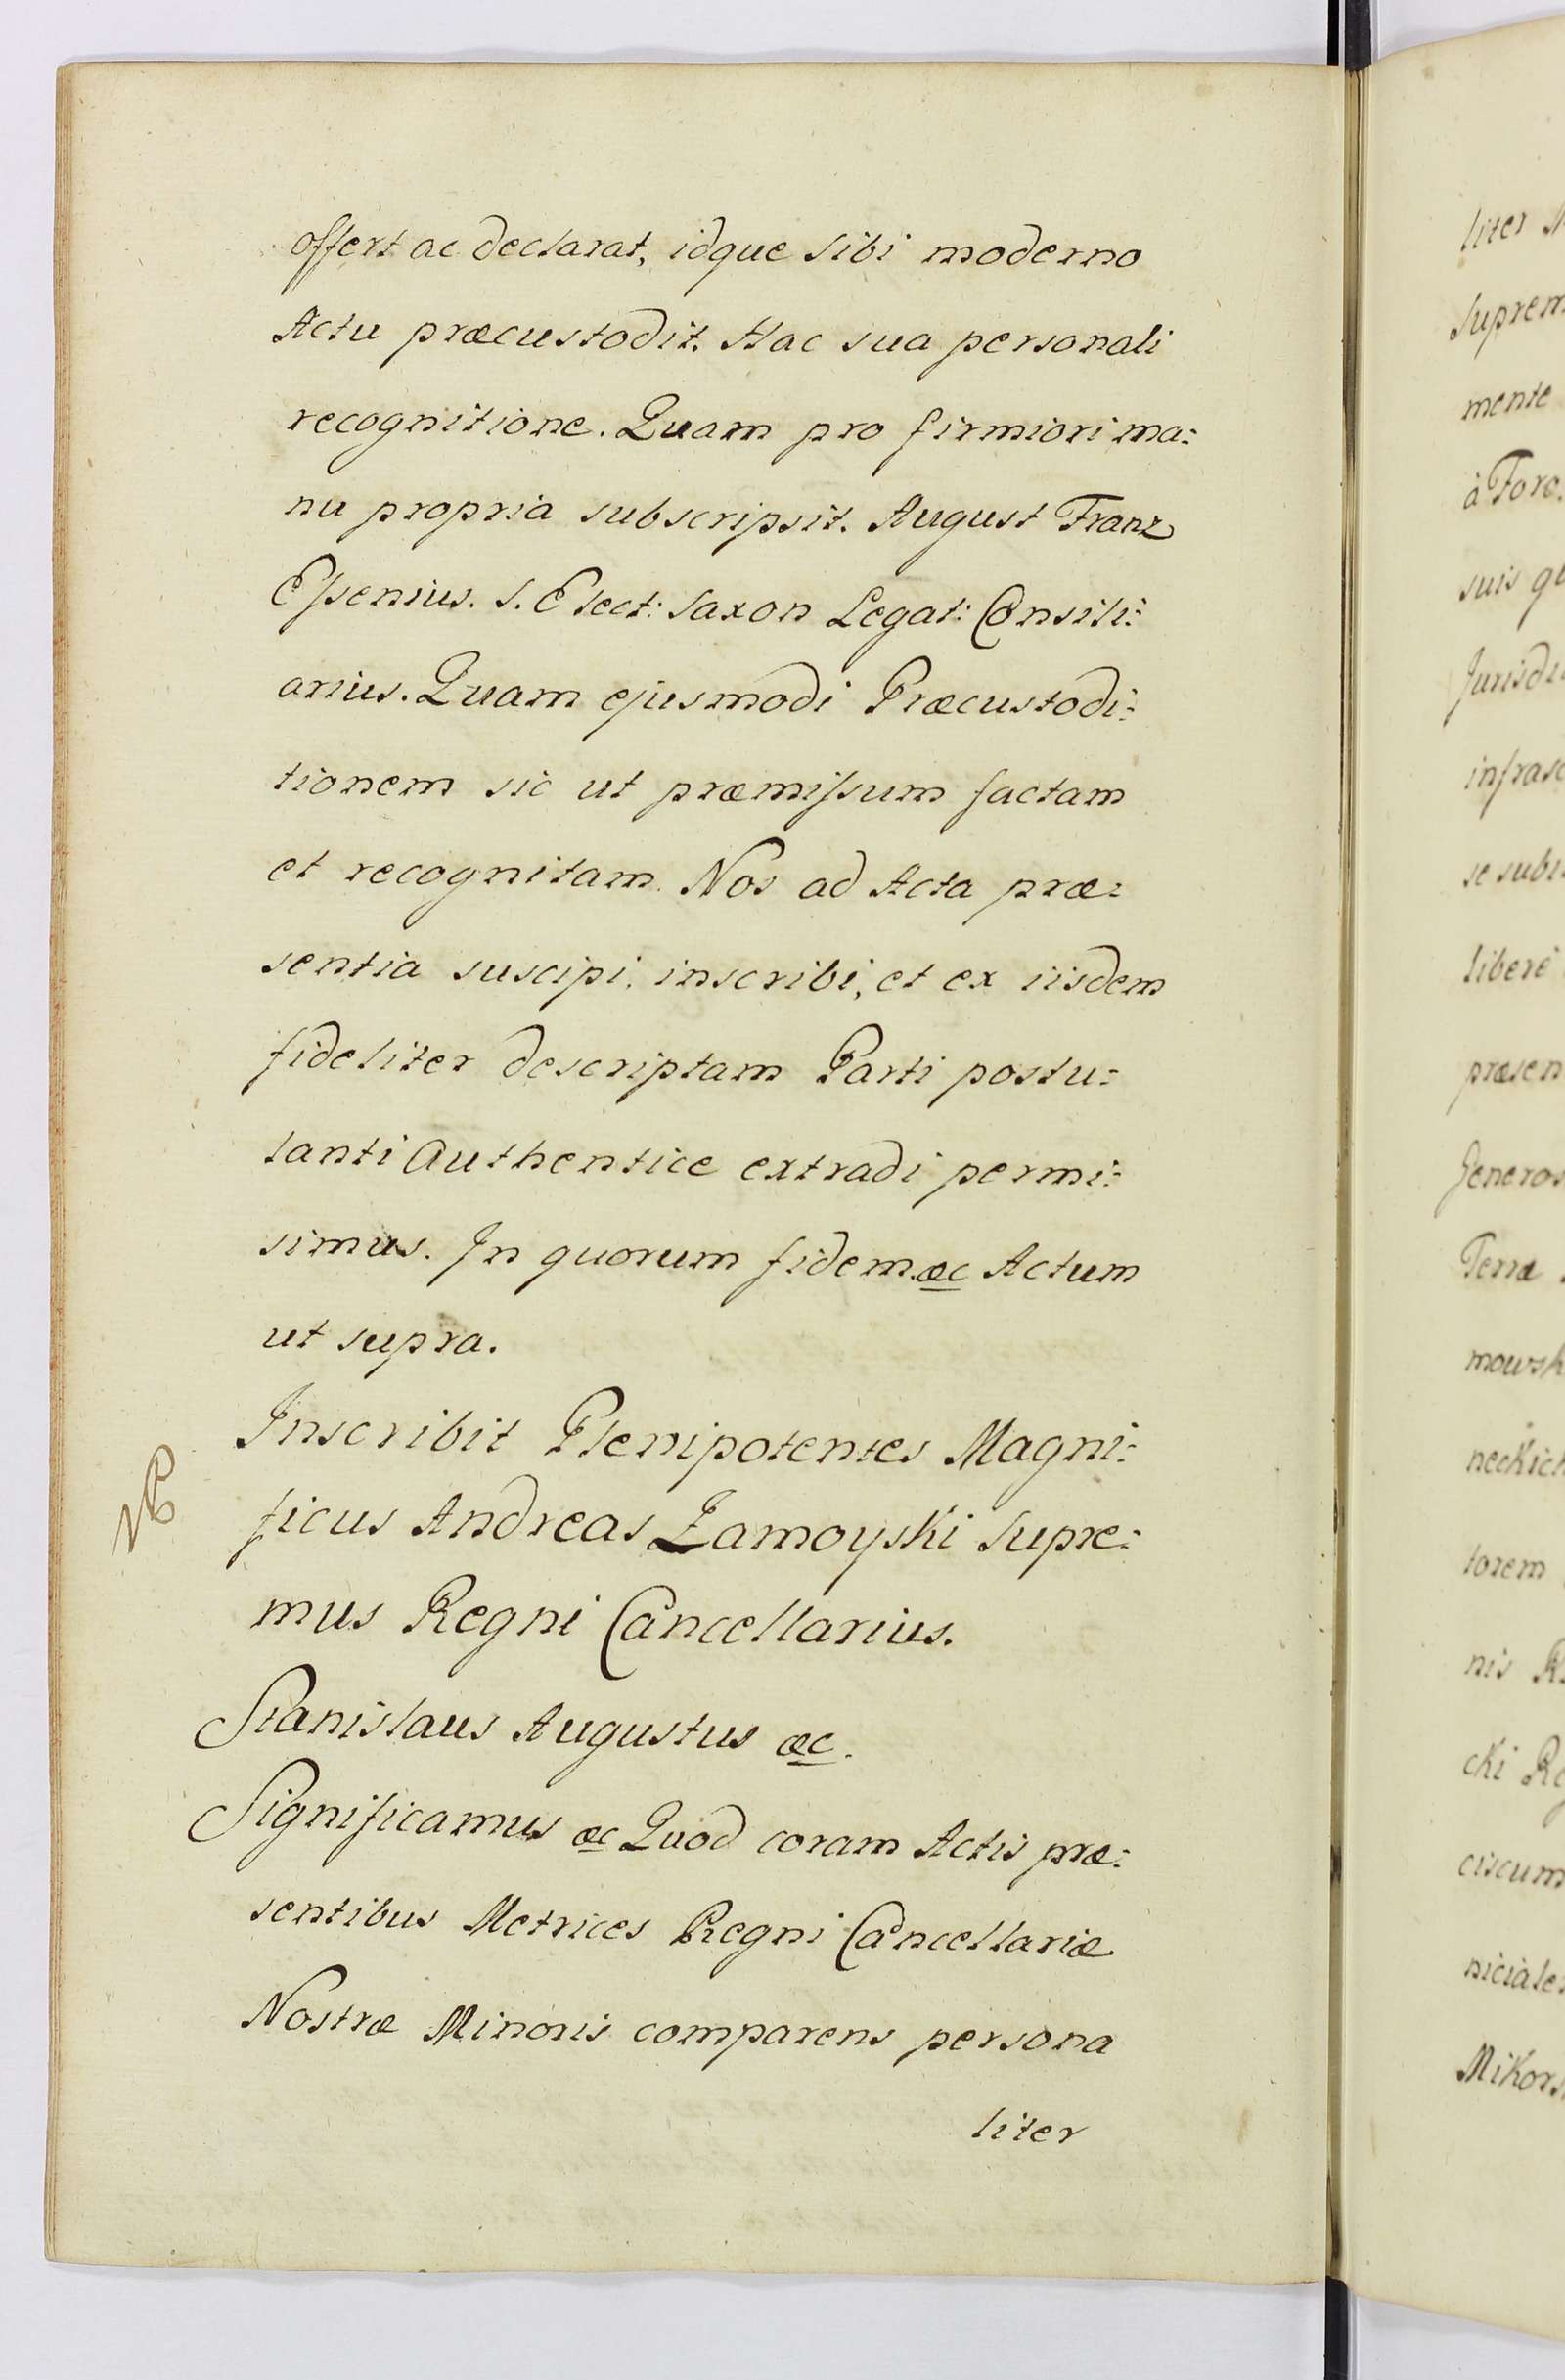 offert ac declarat, idque sibi moderno
Actu præcustodit. Hac sua personali
recognitione. Quam pro firmiori ma:
nu propria subscripsit. August Franz
Essenius. S. Elect: Saxon Legat: Consili:
arius. Quam ejusmodi Præcustodi:
tionem sic ut præmissum factam
et recognitam. Nos ad Acta præ:
sentia suscipi, inscribi, et ex iisdem
fideliter descriptam Parti postu:
lanti Authentice extradi permi:
simus. In quorum fidem. &c Actum
ut supra.
Inscribit Plenipotentes Magni:
ficus Andreas Zamoyski Supre:
mus Regni Cancellarius.
Stanislaus Augustus &c.
Significamus &c Quod coram Actis præ:
sentibus Metrices Regni Cancellariæ
Nostræ Minoris comparens persona
liter
liter
Suprem
mente
à Foro
suis
Jurisdi
infrasc
se subi
libere
præsen
Generos
Terræ
mowsk
neckich
lorem
nis
cki
ciscum
niciales
Mikors